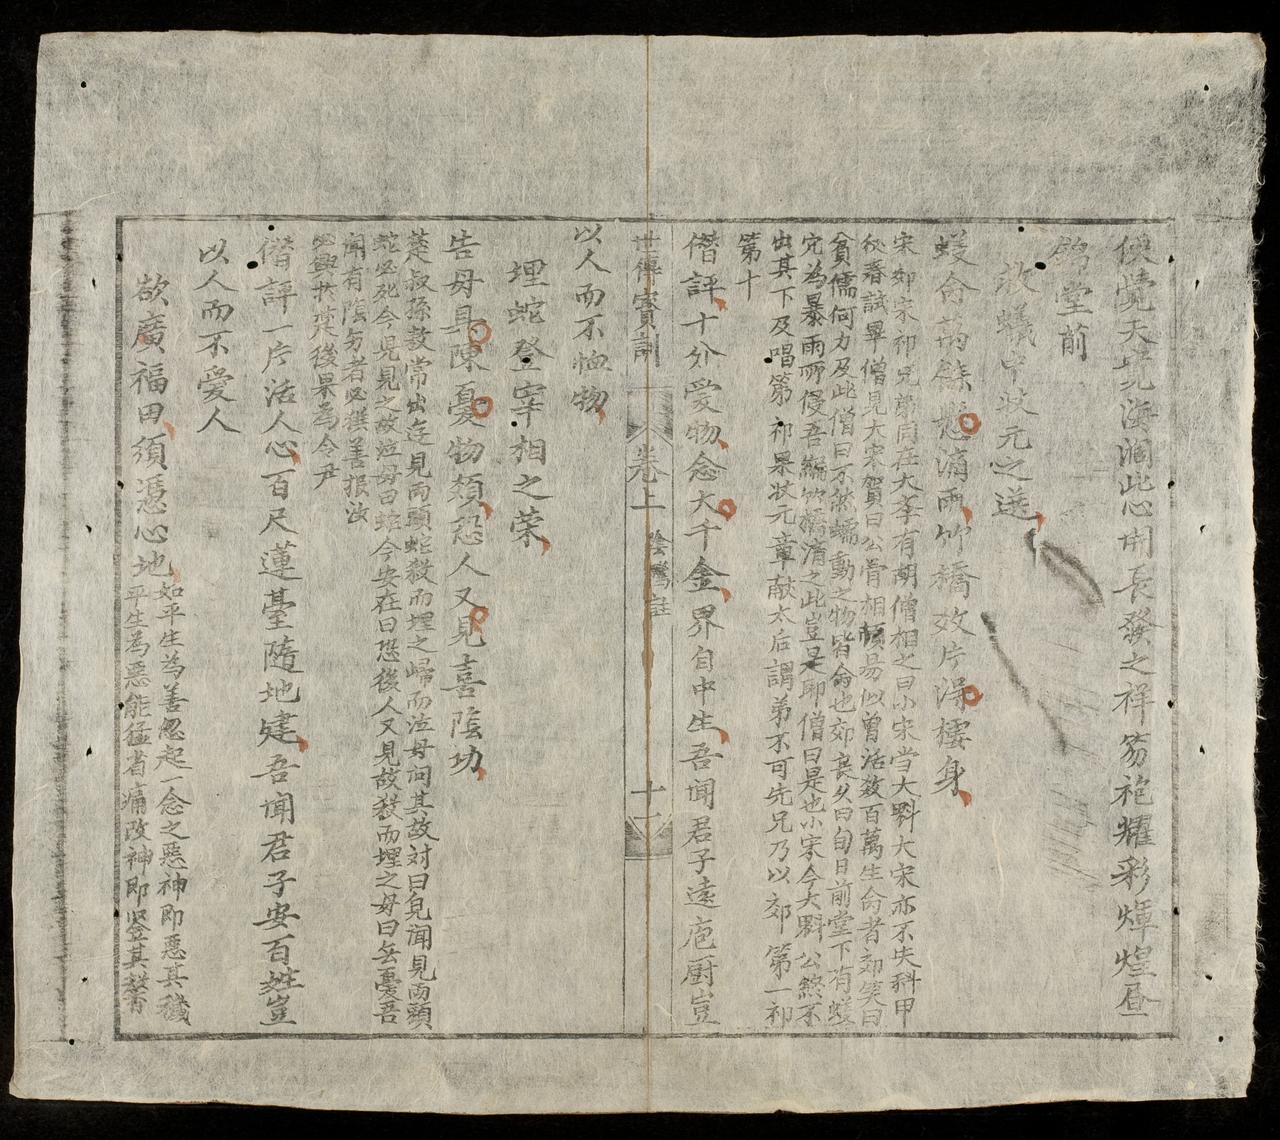 使覺天地海濶此心開長發之祥笏袍耀彩煇煌昼
錦堂前
救蟻中状元之選
蟻命萬餘愁滴雨竹橋效片得棲身
宋郊宋祁兄弟同在大李有胡僧相之曰小宋当大魁大宋亦不失科甲
後春試畢僧見大宋賀曰公骨相頓易似曾活数百萬生命者郊笑曰
貧儒何力及此僧曰不然蠕動之物皆命也郊良久曰旬日前堂下有蟻
穴為暴雨所侵吾編竹橋済之此豈是耶僧曰是也小宋今大魁公終不
出其下及唱第祁果状元章献太后謂弟不可先兄乃以郊第一祁
第十
僭評十分愛物念大千金界自中生吾聞君子遠庖厨豈
世傳寳訓 卷上 陰騭註 十二
以人而不恤物
埋蛇登宰相之荣
告母具陳憂物類恐人又見喜陰功
楚叔孫敖常出逰見两頭蛇殺而埋之歸而泣母问其故対曰兒聞見两頭
蛇必死今見之故泣母曰蛇今安在曰恐後人又見故殺而埋之母曰無憂吾
聞有陰労者必獲善报汝
必興於楚後果為令尹
僭評一片活人心百尺蓮臺隨地建吾聞君子安百姓豈
以人而不愛人
欲廣福田須憑心地
如平生為善忽起一念之惡神即惡其穢
平生為惡能猛省痛改神即鉴其馨